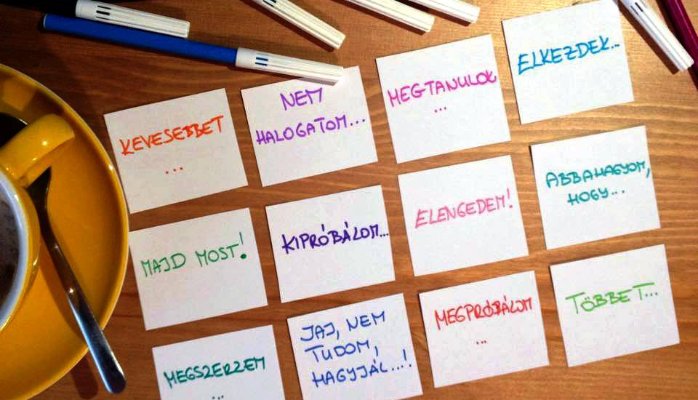 KEVESEBBET
...
NEM
HALOGATOM...
MEGTANULOK
...
ELKEZDEK...
MAJD MOST!
KIPRÓBÁLOM...
ELENGEDEM!
ABBAHAGYOM,
HOGY...
MEGSZERZEM
...
JAJ, NEM
TUDOM,
HAGYJÁL...!
MEGPRÓBÁLOM
...
TÖBBET...